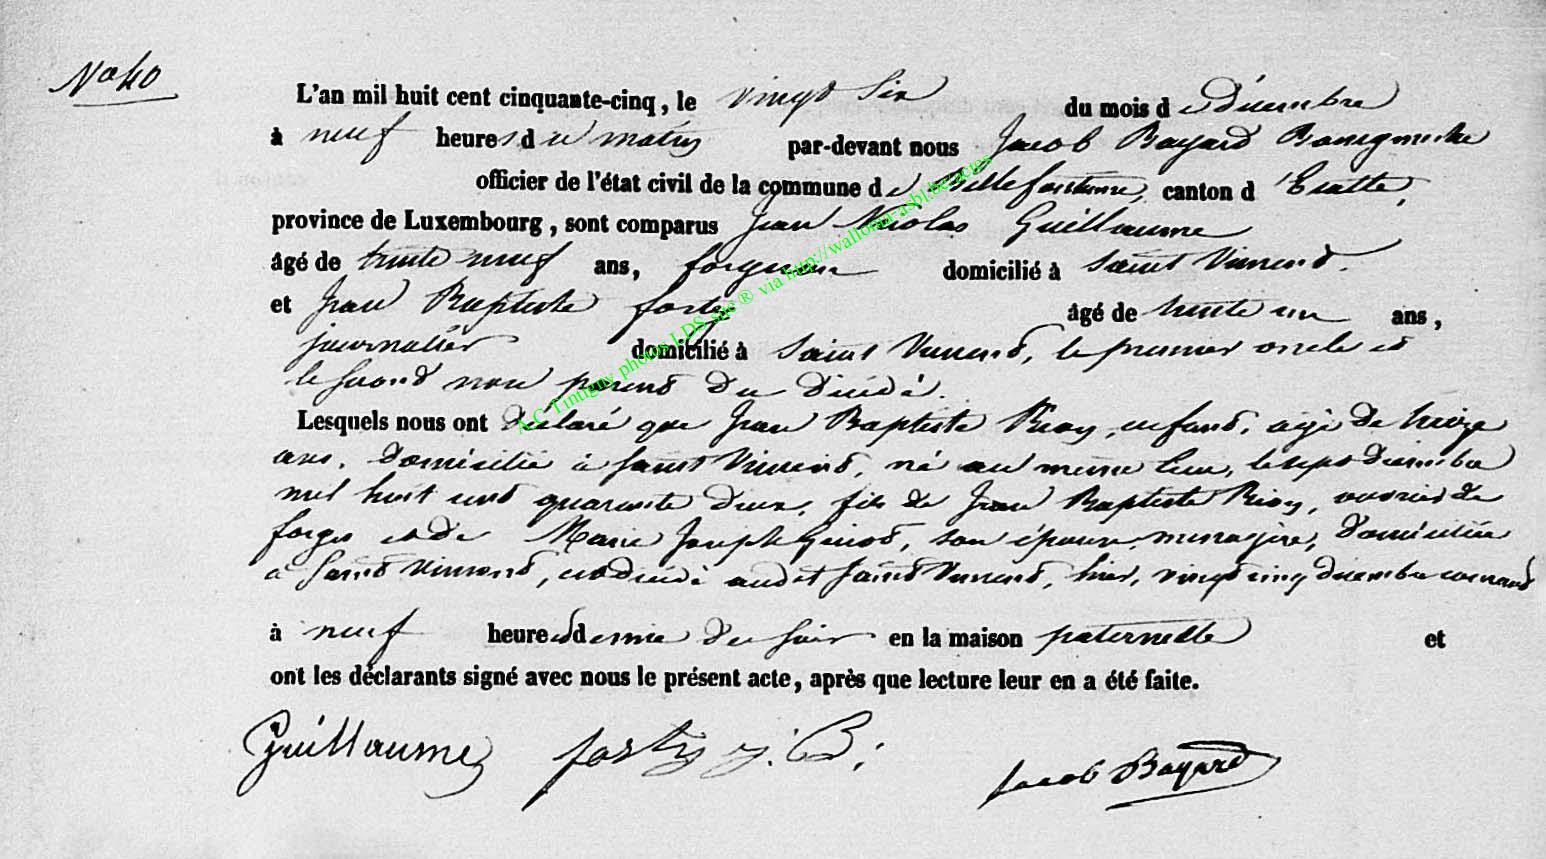 N° 40
L'an mil huit cent cinquante-cinq, le vingt six du mois de décembre
à neuf heures du matin par-devant nous Jacob Bayard Bourgmestre
officier de l'état civil de la commune de Bellefontaine, canton d'Etalle,
province de Luxembourg, sont comparus Jean Nicolas Guillaume
âgé de trente neuf ans, forgeur domicilié à Saint Vincent.
et Jean Baptiste forty âgé de trente un ans,
journalier domicilié à Saint Vincent, le premier oncle et
le second non parent du décédé.
Lesquels nous ont déclaré que Jean Baptiste, enfant, agé de treize
ans, domicilié à Saint Vincent, né au même lieu, le sept décembre
mil huit cent quarante deux, fils de Jean Baptiste, ouvrier de
forges et de Marie Joseph, son épouse, ménagère, domiciliée
à Saint Vincent, est décédé audit Saint Vincent, hier, vingt cinq décembre courant
à neuf heures et demie du soir en la maison paternelle et
ont les déclarants signé avec nous le présent acte, après que lecture leur en a été faite.
Guillaume forty j. B. Jacob Bayard
A.C Tintigny photos LDS slc ® via http://wallonia-asbl.be/actes